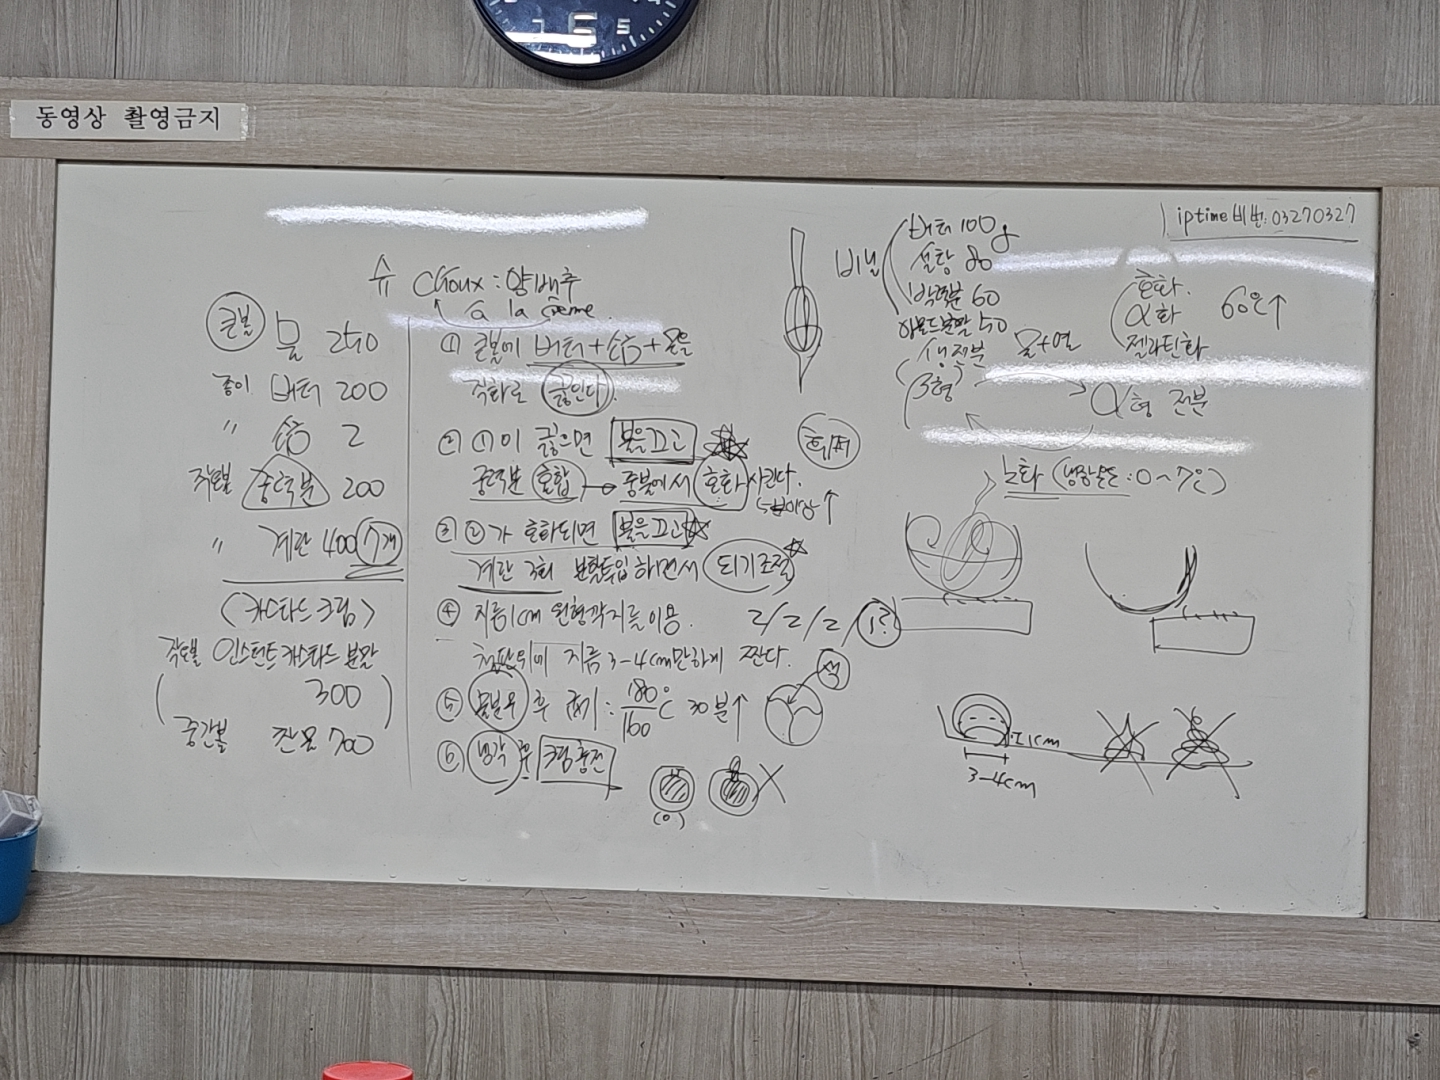 7 6 5
동영상 촬영금지
iptime 비번: 03270327
슈 choux : 양배추
à la creme.
큰볼 물 250
종이 버터 200
〃 소금 2
작은볼 중력분 200
〃 계란 400 (7개)
<커스타드 크림>
작은볼 인스턴트 커스타드 분말
300
중간볼 찬물 700
① 큰볼에 버터+소금+물을
직화로 끓인다.
② ①이 끓으면 불을끄고
중력분 혼합 → 중불에서 호화시킨다.
5분이상↑
③ ②가 호화되면 불을끄고
계란 3회 분할투입 하면서 되기조절
④ 지름1cm 원형깍지를 이용.
철판위에 지름 3-4cm만하게 짠다.
2/2/2/1?
⑤ 물분무 후 굽기: 180/160℃ 30분↑
색
⑥ 냉각 후 크림충전
(O) X
휘퍼
비닐
버터 100g
설탕 80
박력분 60
아몬드분말 50
호화.
α화
젤라틴화
60℃↑
생전분
β형
물+열
α형 전분
노화 (냉장온도: 0~7℃)
1cm
3-4cm